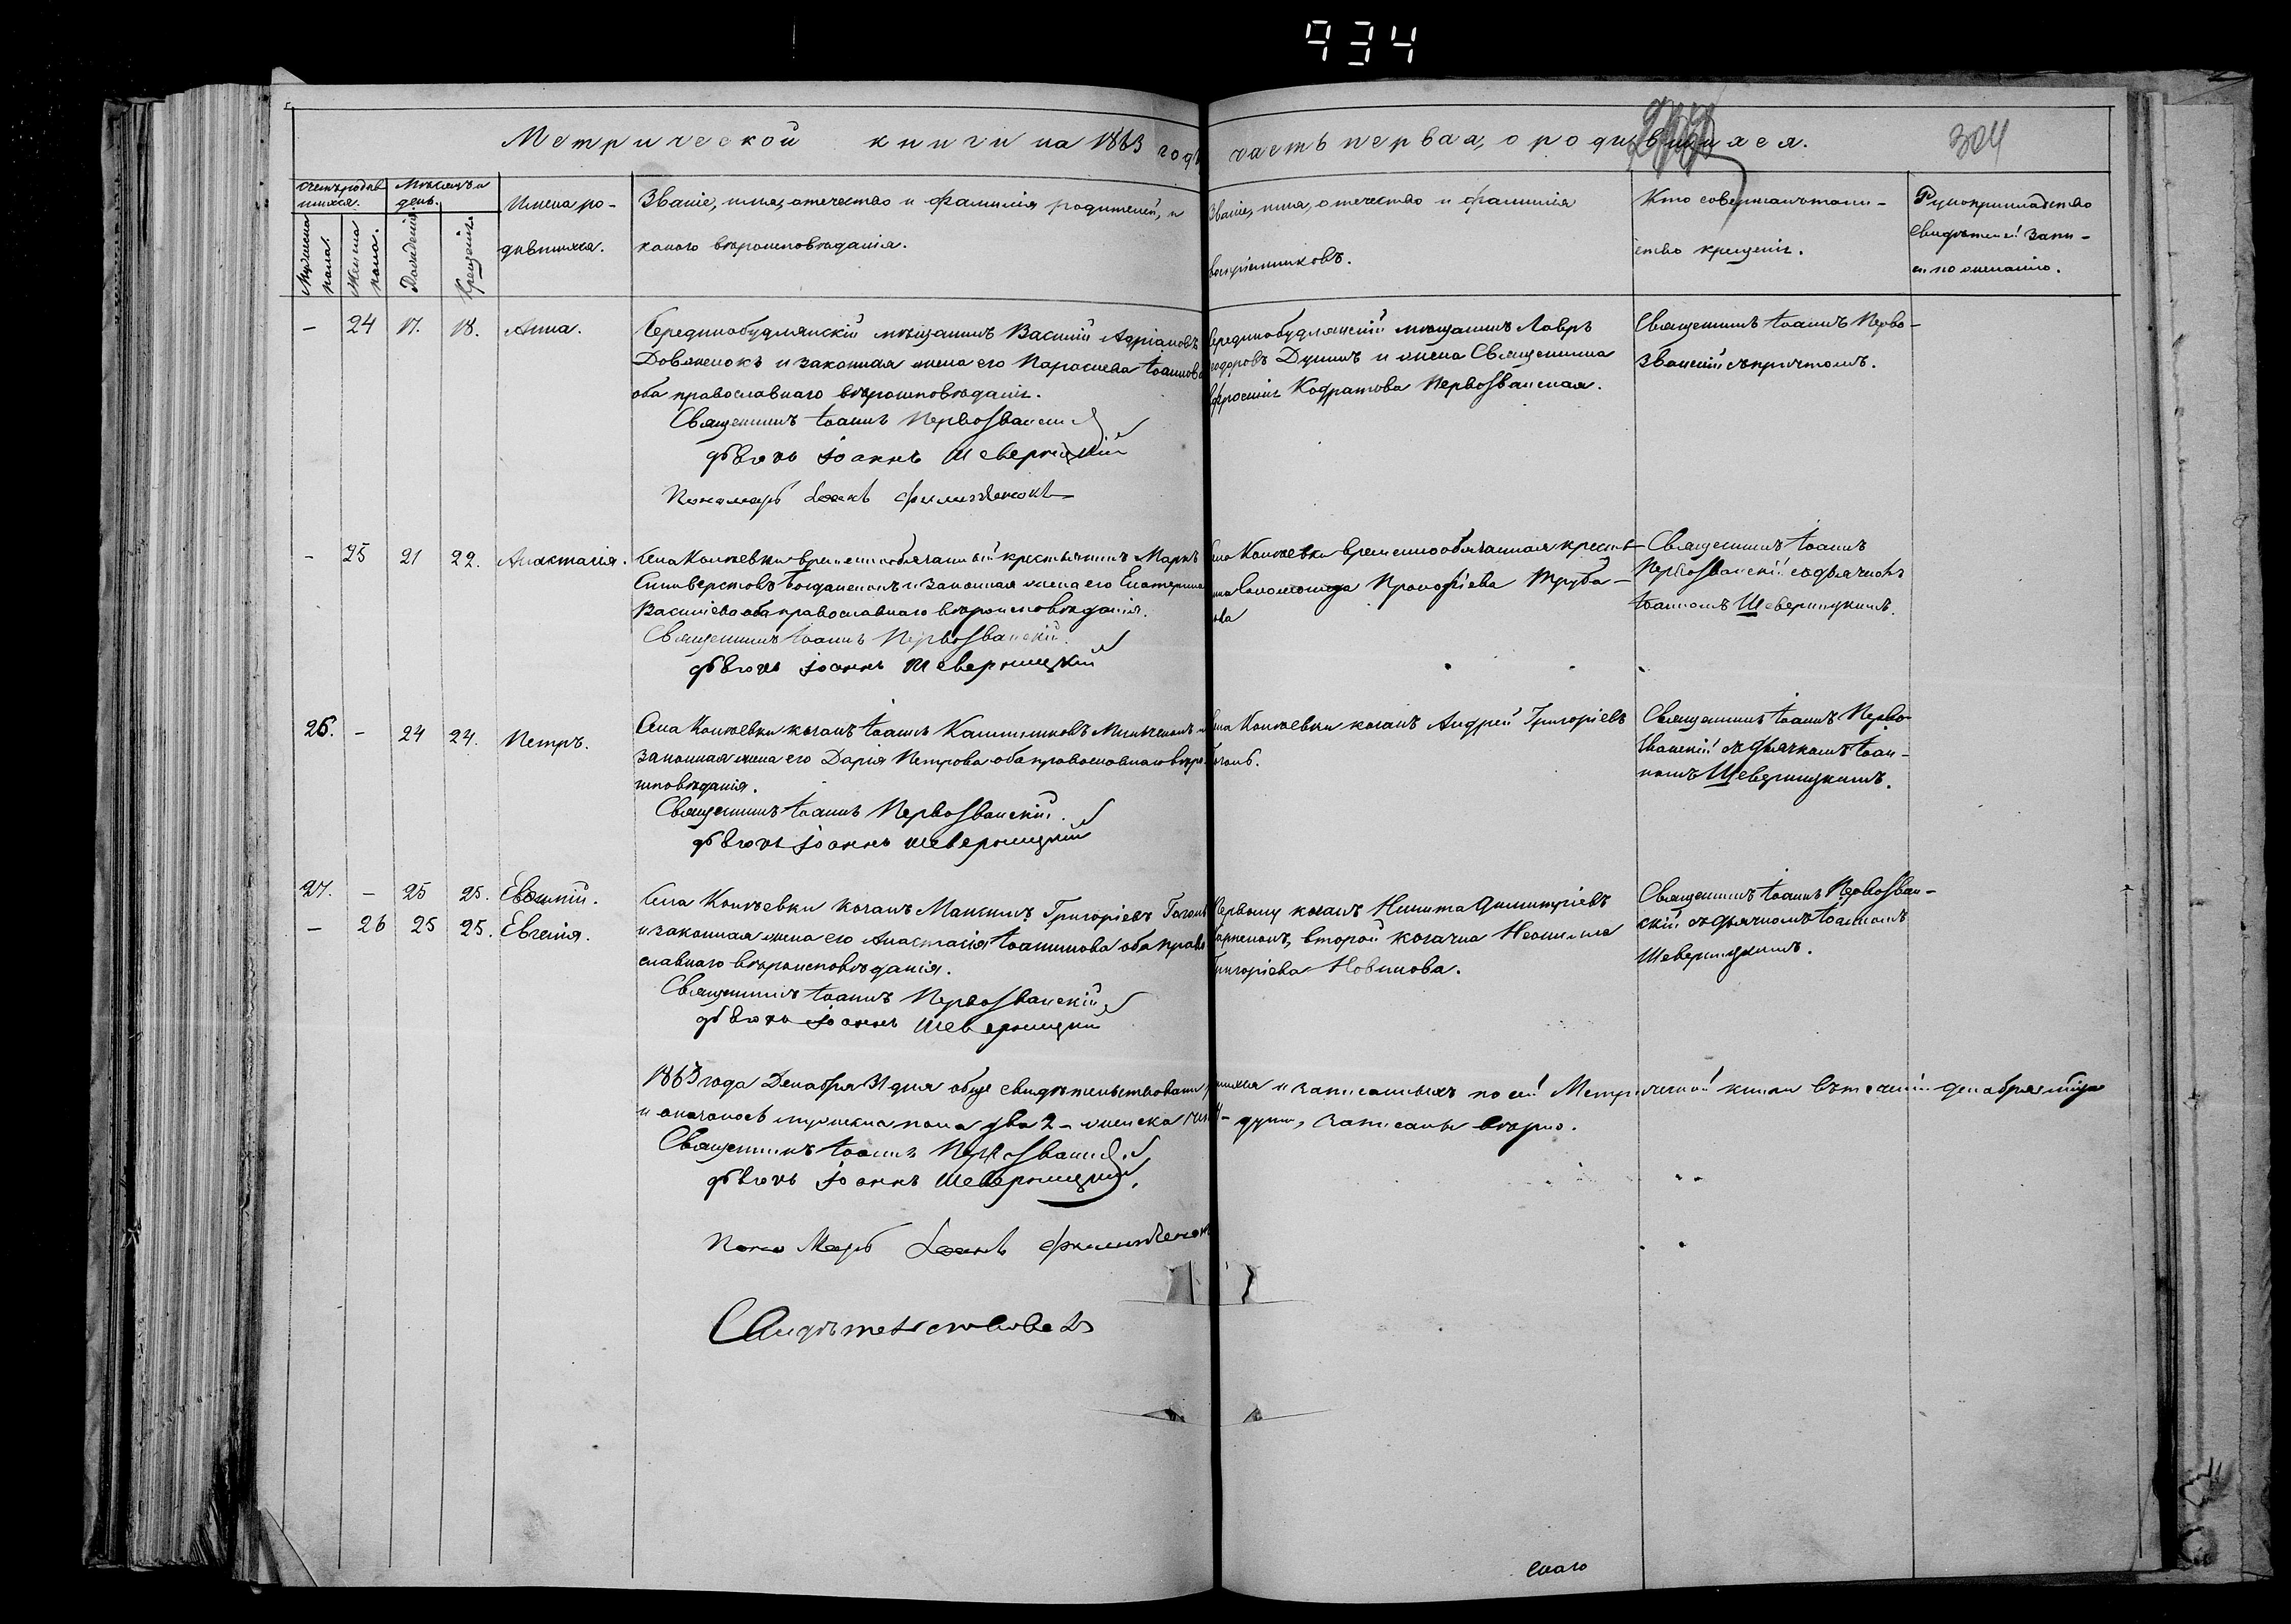 934
Метрической книги на 1863 годъ часть первая, о родившихся.
304
Счетъ родив-
шихся.
Мѣсяцъ и
день.
Мужеска
пола.
Женска
пола.
Рожденія
Крещенія
Имена ро-
дившихся.
Званіе, имя, отчество и фамилія родителей, и
какого вѣроисповѣданія.
Званіе, имя, отчество и фамилія
воспріемниковъ.
Кто совершалъ таин-
ство крещенія.
Рукоприкладство
свидѣтелей запи-
си по желанію.
– 24 17. 18. Анна.
Середино будлянскій мѣщанинъ Василій Адріановъ
Довженокъ и законная жена его Параскева Іоаннова
оба православнаго вѣроисповѣданія.
Священникъ Іоаннъ Первозванскій
дьячокъ Іоаннъ Шеверницкій
Пономарь Іоаннъ
Середино будлянскій мѣщанинъ Лавръ
Ѳедоровъ Дунинъ и жена Священника
Кодратова Первозванская.
Священникъ Іоаннъ Перво-
званскій съ причтомъ.
– 25 21 22. Анастасія.
Села временно обязанный крестьянинъ Маркъ
Силиверстовъ Богдановъ и законная жена его Екатерина
Васильева оба православнаго вѣроисповѣданія.
Священникъ Іоаннъ Первозванскій
дьячокъ Іоаннъ Шеверницкій
Села временно обязанная кресть-
Соломонида Прокофіева Труба-
ова
Священникъ Іоаннъ
Первозванскій съ дьячкомъ
Іоанномъ Шеверницкимъ.
26. – 24 24. Петръ.
Села козакъ Іоаннъ и
законная жена его Дарія Петрова оба православнаго вѣро-
исповѣданія.
Священникъ Іоаннъ Первозванскій.
дьячокъ Іоаннъ Шеверницкій
Села козакъ Андрей Григоріевъ
Священникъ Іоаннъ Перво-
званскій съ дьячкомъ Іоан-
номъ Шеверницкимъ.
27. – 25 25.
– 26 25 25. Евгенія.
Села козакъ Максимъ Григоріевъ
и законная жена его Анастасія Іоаннова оба право-
славнаго вѣроисповѣданія.
Священникъ Іоаннъ Первозванскій
дьячокъ Іоаннъ Шеверницкій
Первому козакъ Никита Димитріевъ
второй козачка
Григоріева Новикова.
Священникъ Іоаннъ Первозван-
скій съ дьячкомъ Іоанномъ
Шеверницкимъ.
1863 года Декабря 31 дня обще свидѣтельствовали и записанныхъ по сей Метрической книги въ теченіи декабря мѣсяца
и оказалось мужеска пола два 2 – женска душъ, записаны вѣрно.
Священникъ Іоаннъ Первозванскій
дьячокъ Іоаннъ Шеверницкій.
Пономарь Іоаннъ
Свидѣтельствовалъ